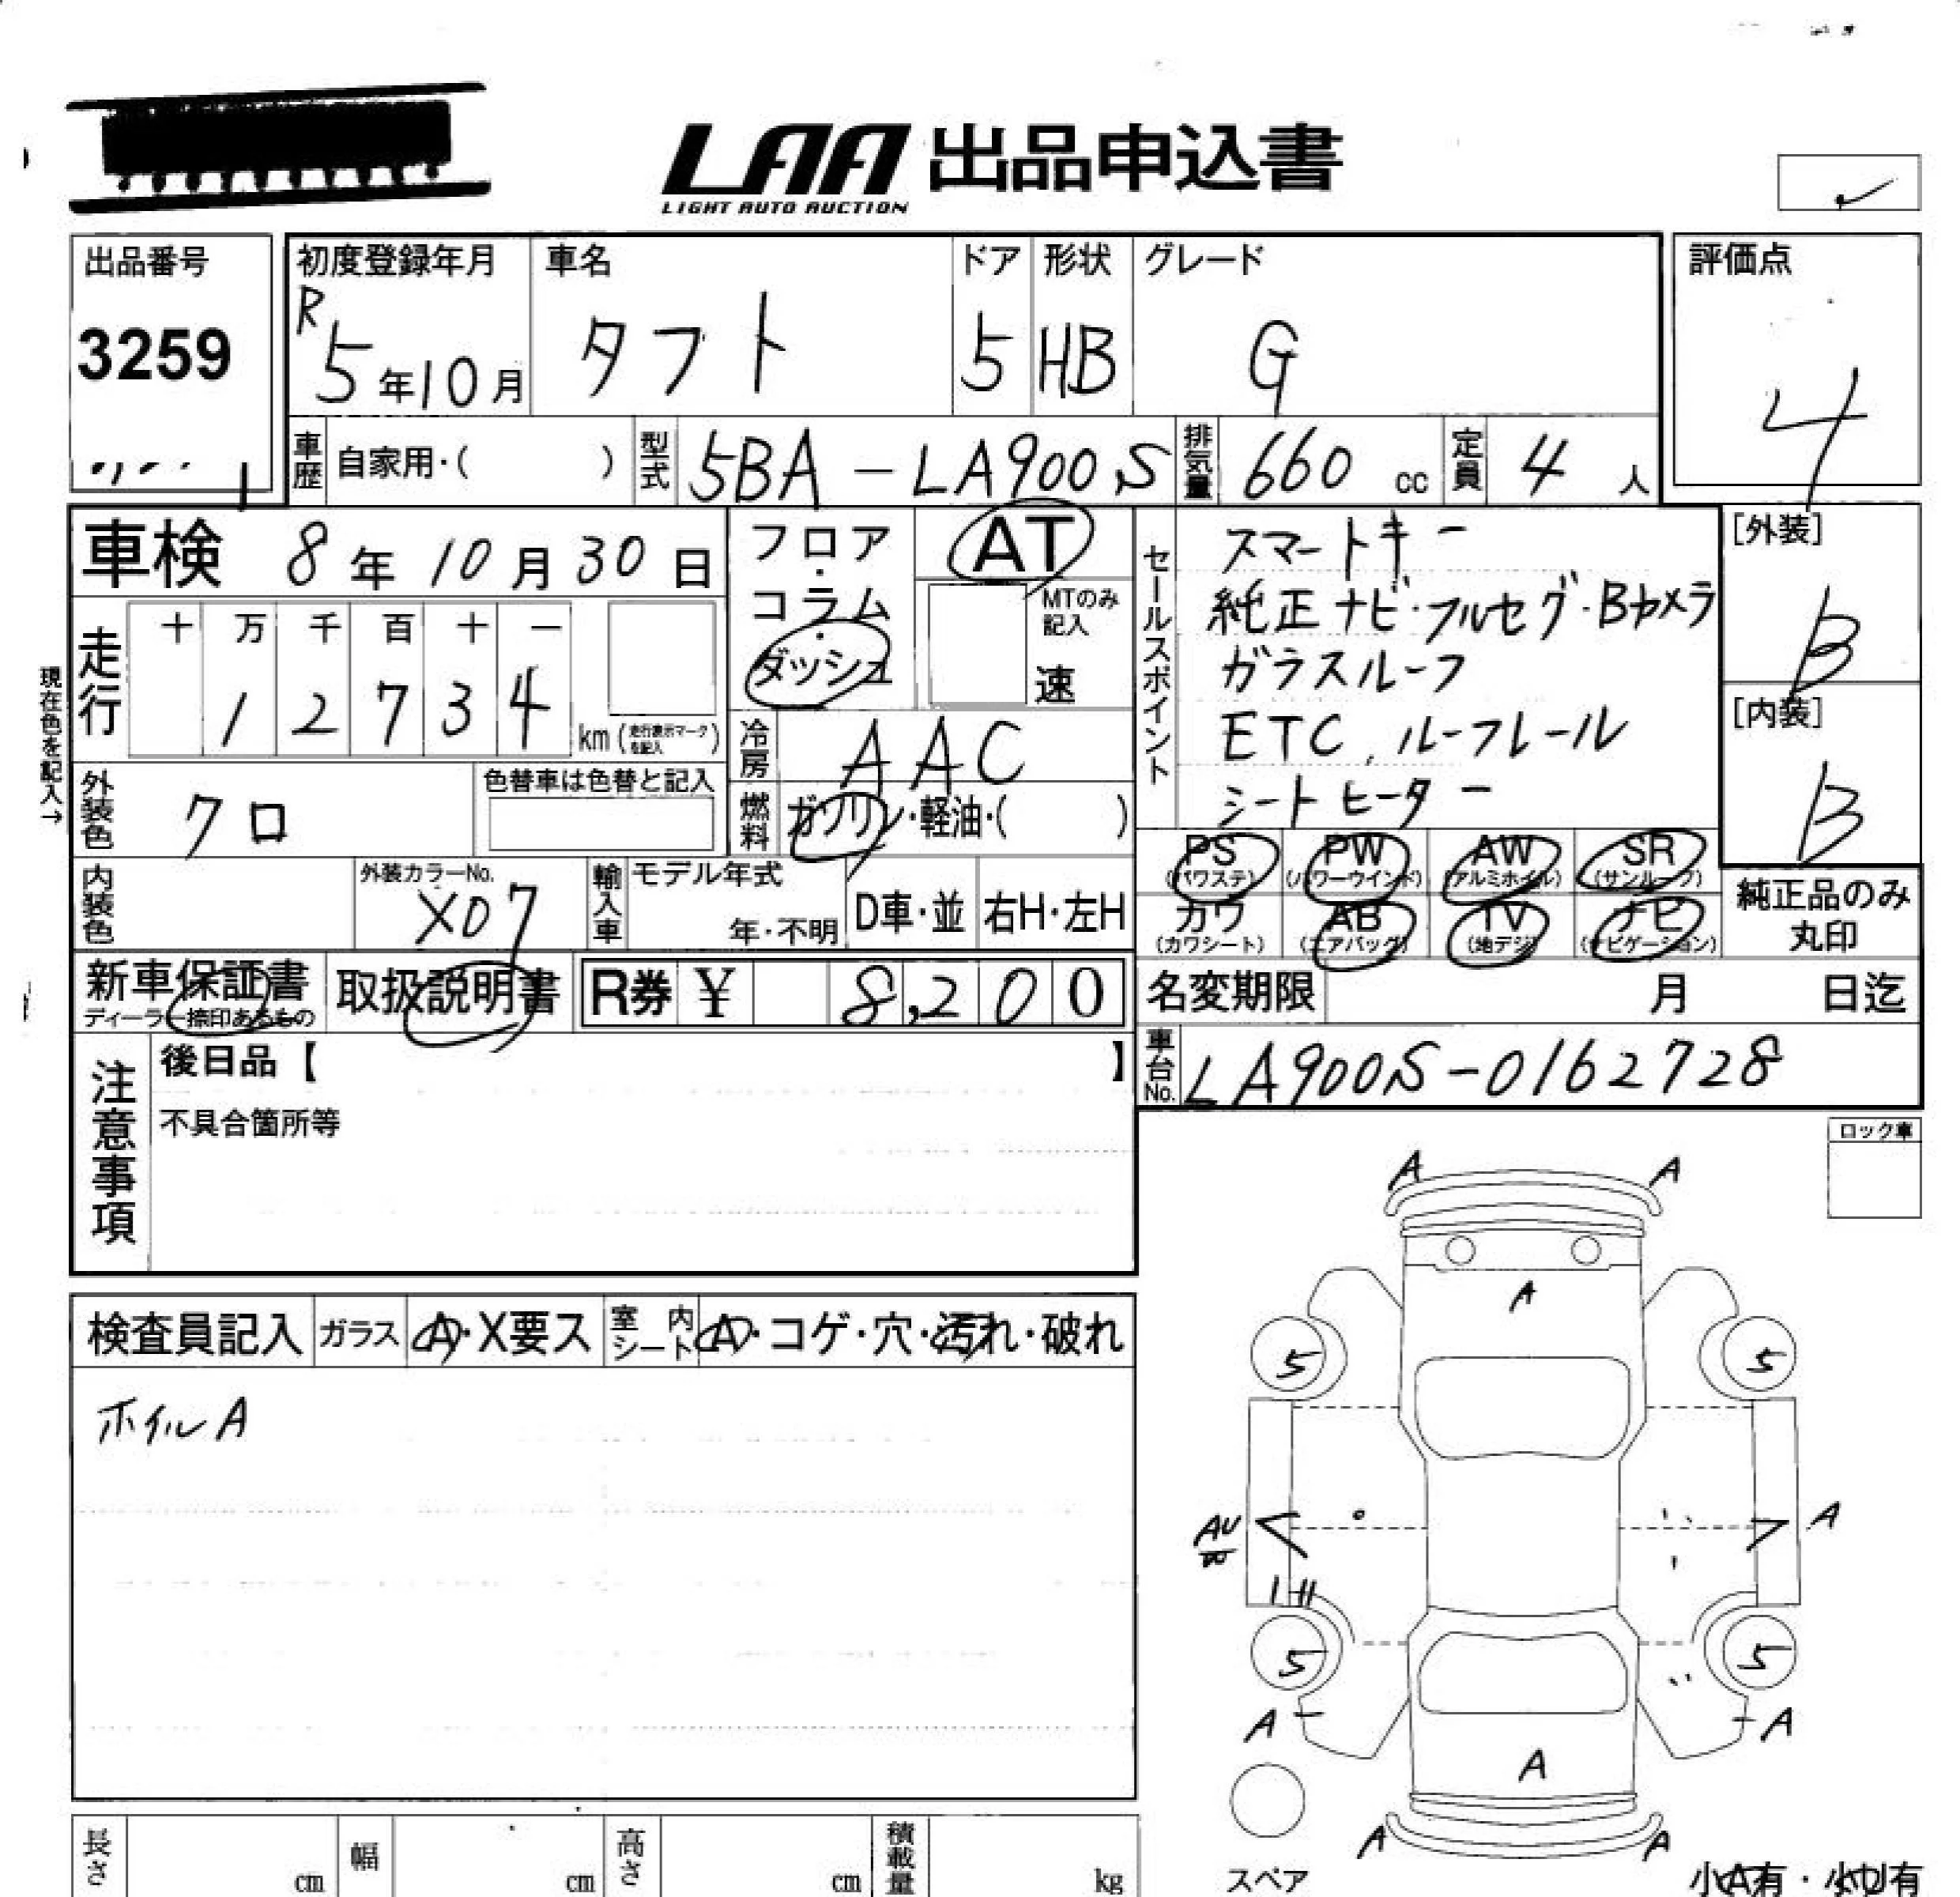 LAA 出品申込書
LIGHT AUTO AUCTION
出品番号
3259
初度登録年月
R5年10月
車名
タフト
ドア
5
形状
HB
グレード
G
評価点
4
車歴 自家用・( )
型式 5BA-LA900S
排気量 660 cc
定員 4 人
車検 8年10月30日
フロア・コラム・ダッシュ
AT
MTのみ記入
速
セールスポイント
スマートキー
純正ナビ・フルセグ・Bカメラ
ガラスルーフ
ETC、ルーフレール
シートヒーター
[外装]
B
[内装]
B
現在色を記入→
走行
十 万 千 百 十 一
1 2 7 3 4
km (走行表示マークを記入)
冷房 AAC
燃料 ガソリン・軽油・( )
外装色 クロ
色替車は色替と記入
内装色
外装カラーNo.
X07
輸入車
モデル年式
年・不明
D車・並
右H・左H
PS (パワステ)
PW (パワーウインド)
AW (アルミホイル)
SR (サンルーフ)
カワ (カワシート)
AB (エアバッグ)
TV (地デジ)
ナビ (ナビゲーション)
純正品のみ丸印
新車保証書
ディーラー捺印あるもの
取扱説明書
R券 ¥ 8,200
名変期限 月 日迄
車台No. LA900S-0162728
注意事項
後日品【 】
不具合箇所等
ロック車
検査員記入
ガラス A・X要ス
室内シート A・コゲ・穴・汚れ・破れ
ホイルA
A A
A
5 5
AU
A
5 5
A A
A
A A
スペア
小A有・小U有
長さ cm
幅 cm
高さ cm
積載量 kg